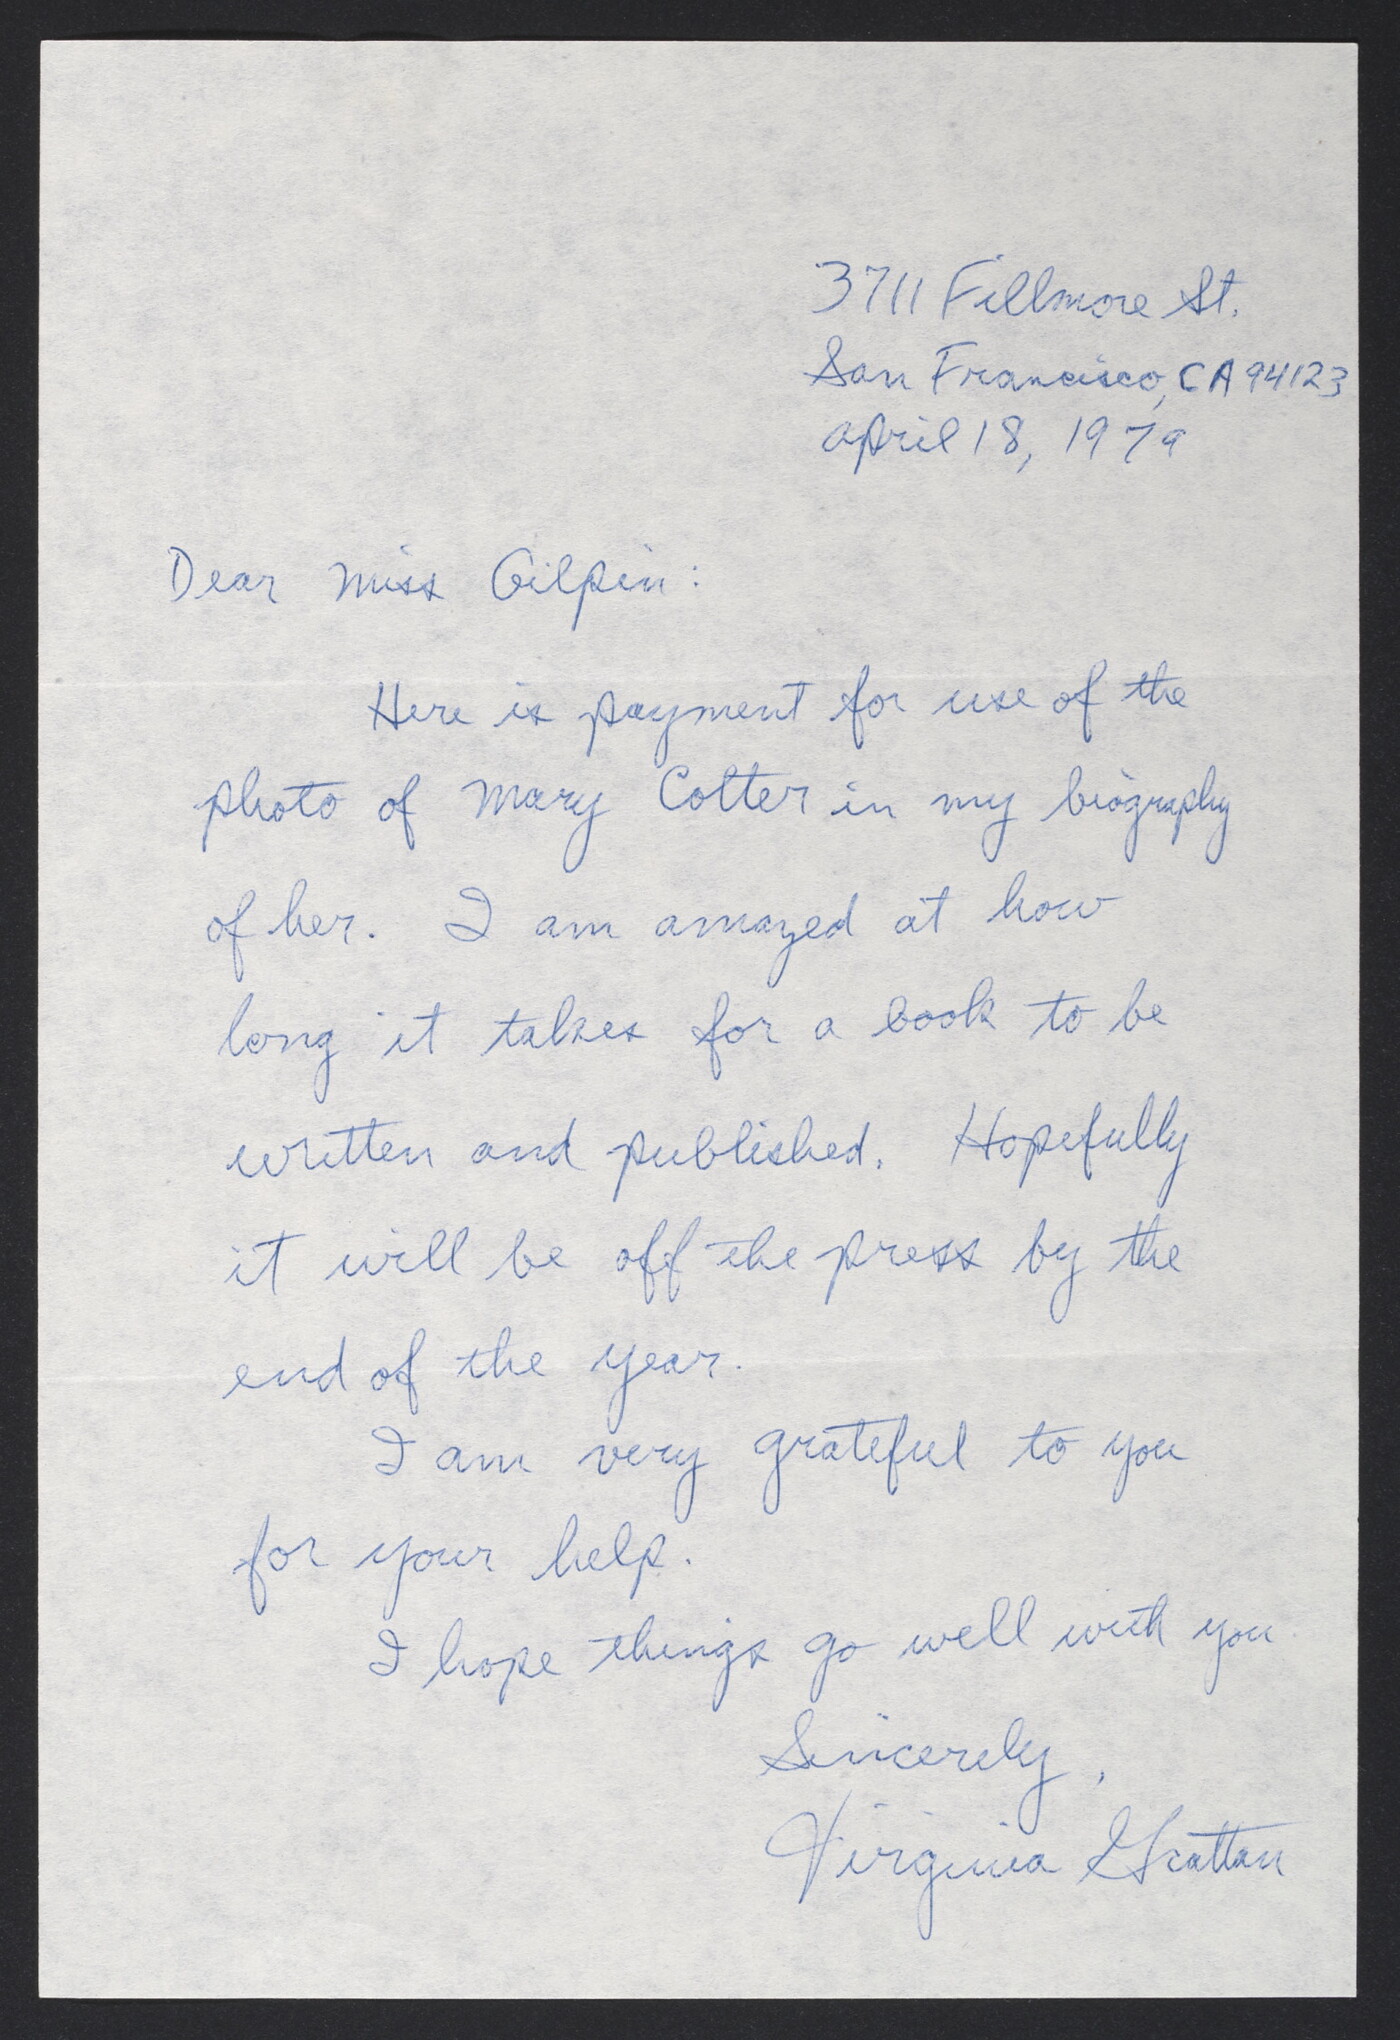 3711 Fillmore St.
San Francisco, CA 94123
April 18, 1979
Dear Miss Gilpin:
Here is payment for use of the
photo of Mary Colter in my biography
of her. I am amazed at how
long it takes for a book to be
written and published. Hopefully
it will be off the press by the
end of the year.
I am very grateful to you
for your help.
I hope things go well with you
Sincerely,
Virginia Grattan